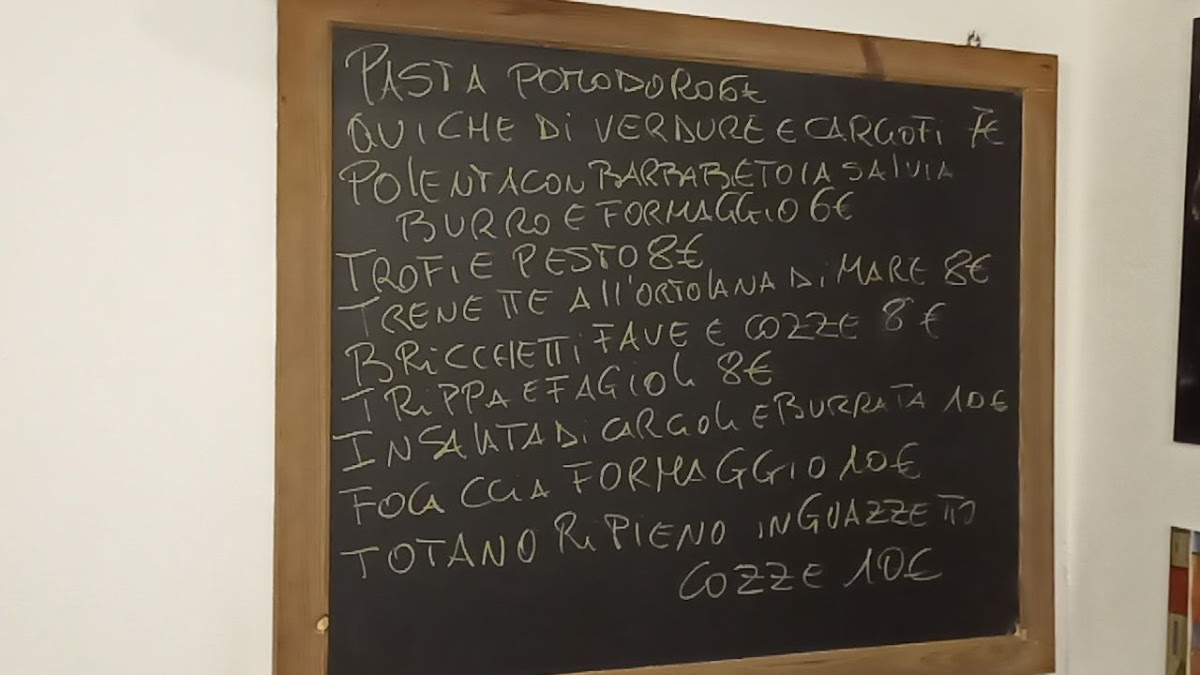 PASTA POMODORO 6€
QUICHE DI VERDURE E CARGOFI 7€
POLENTA CON BARBABIETOLA SALVIA
BURRO E FORMAGGIO 6€
TROFIE PESTO 8€
TRENETTE ALL'ORTOLANA DI MARE 8€
BRICCHETTI FAVE E COZZE 8€
TRIPPA E FAGIOLI 8€
INSALATA DI CARCIOFI E BURRATA 10€
FOCACCIA FORMAGGIO 10€
TOTANO RIPIENO IN GUAZZETTO
COZZE 10€